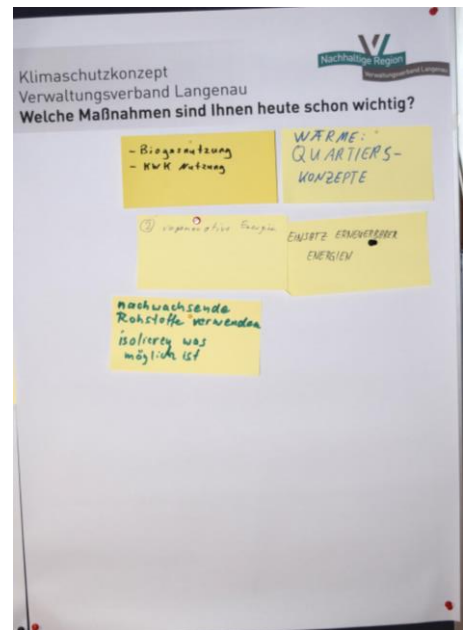 Nachhaltige Region
Verwaltungsverband Langenau
Klimaschutzkonzept
Verwaltungsverband Langenau
Welche Maßnahmen sind Ihnen heute schon wichtig?
- Biogasnutzung
- KWK Nutzung
WÄRME:
QUARTIERS-
KONZEPTE
② regenerative Energie
EINSATZ ERNEUERBARER
ENERGIEN
nachwachsende
Rohstoffe verwenden
isolieren was
möglich ist